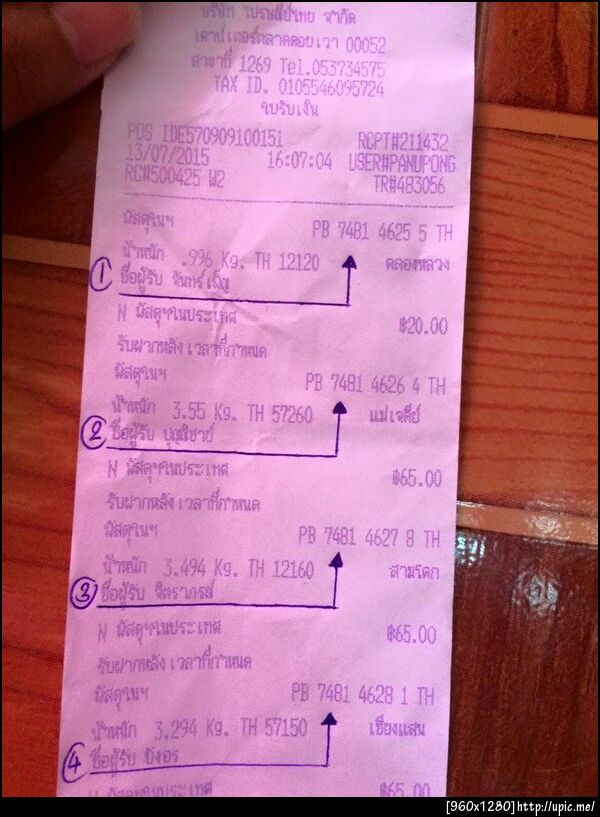 บริษัท ไปรษณีย์ไทย จำกัด
เคาน์เตอร์ตลาดดอยเวา 00052
สาขาที่ 1269 Tel.053734575
TAX ID. 0105546095724
ใบรับเงิน
POS IDE570909100151 RCPT#211432
13/07/2015 16:07:04 USER#PANUPONG
RC#500425 W2 TR#483056
พัสดุในฯ PB 7481 4625 5 TH
น้ำหนัก .996 Kg. TH 12120 คลองหลวง
1 ชื่อผู้รับ จันทร์เพ็ญ
N พัสดุฯในประเทศ ฿20.00
รับฝากหลังเวลาที่กำหนด
พัสดุในฯ PB 7481 4626 4 TH
น้ำหนัก 3.55 Kg. TH 57260 แม่เจดีย์
2 ชื่อผู้รับ
N พัสดุฯในประเทศ ฿65.00
รับฝากหลังเวลาที่กำหนด
พัสดุในฯ PB 7481 4627 8 TH
น้ำหนัก 3.494 Kg. TH 12160 สามโคก
3 ชื่อผู้รับ จิตราภรณ์
N พัสดุฯในประเทศ ฿65.00
รับฝากหลังเวลาที่กำหนด
พัสดุในฯ PB 7481 4628 1 TH
น้ำหนัก 3.294 Kg. TH 57150 เชียงแสน
4 ชื่อผู้รับ บังอร
N พัสดุฯในประเทศ ฿65.00
[960x1280]http://upic.me/